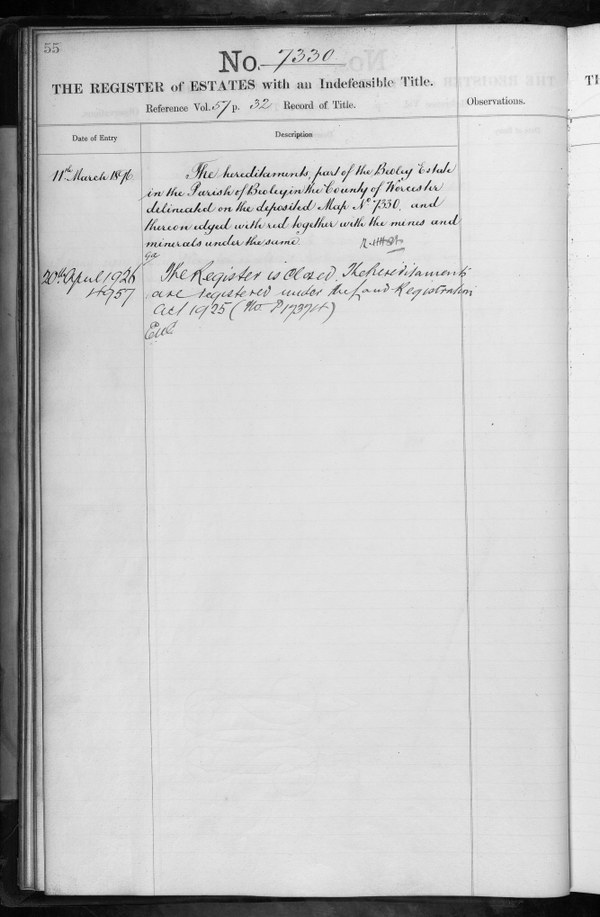 55
No. 7330
THE REGISTER of ESTATES with an Indefeasible Title.
Reference Vol. 57 p. 32 Record of Title.
Observations.
Date of Entry
Description
11th March 1896
The hereditaments, part of the Beoley Estate
in the Parish of Beoley in the County of Worcester
delineated on the deposited Map No 7330, and
thereon edged with red together with the mines and
minerals under the same
20th April 1926
4957
The Register is closed The hereditaments
are registered under the Land Registration
Act 1925 (No. P17374)